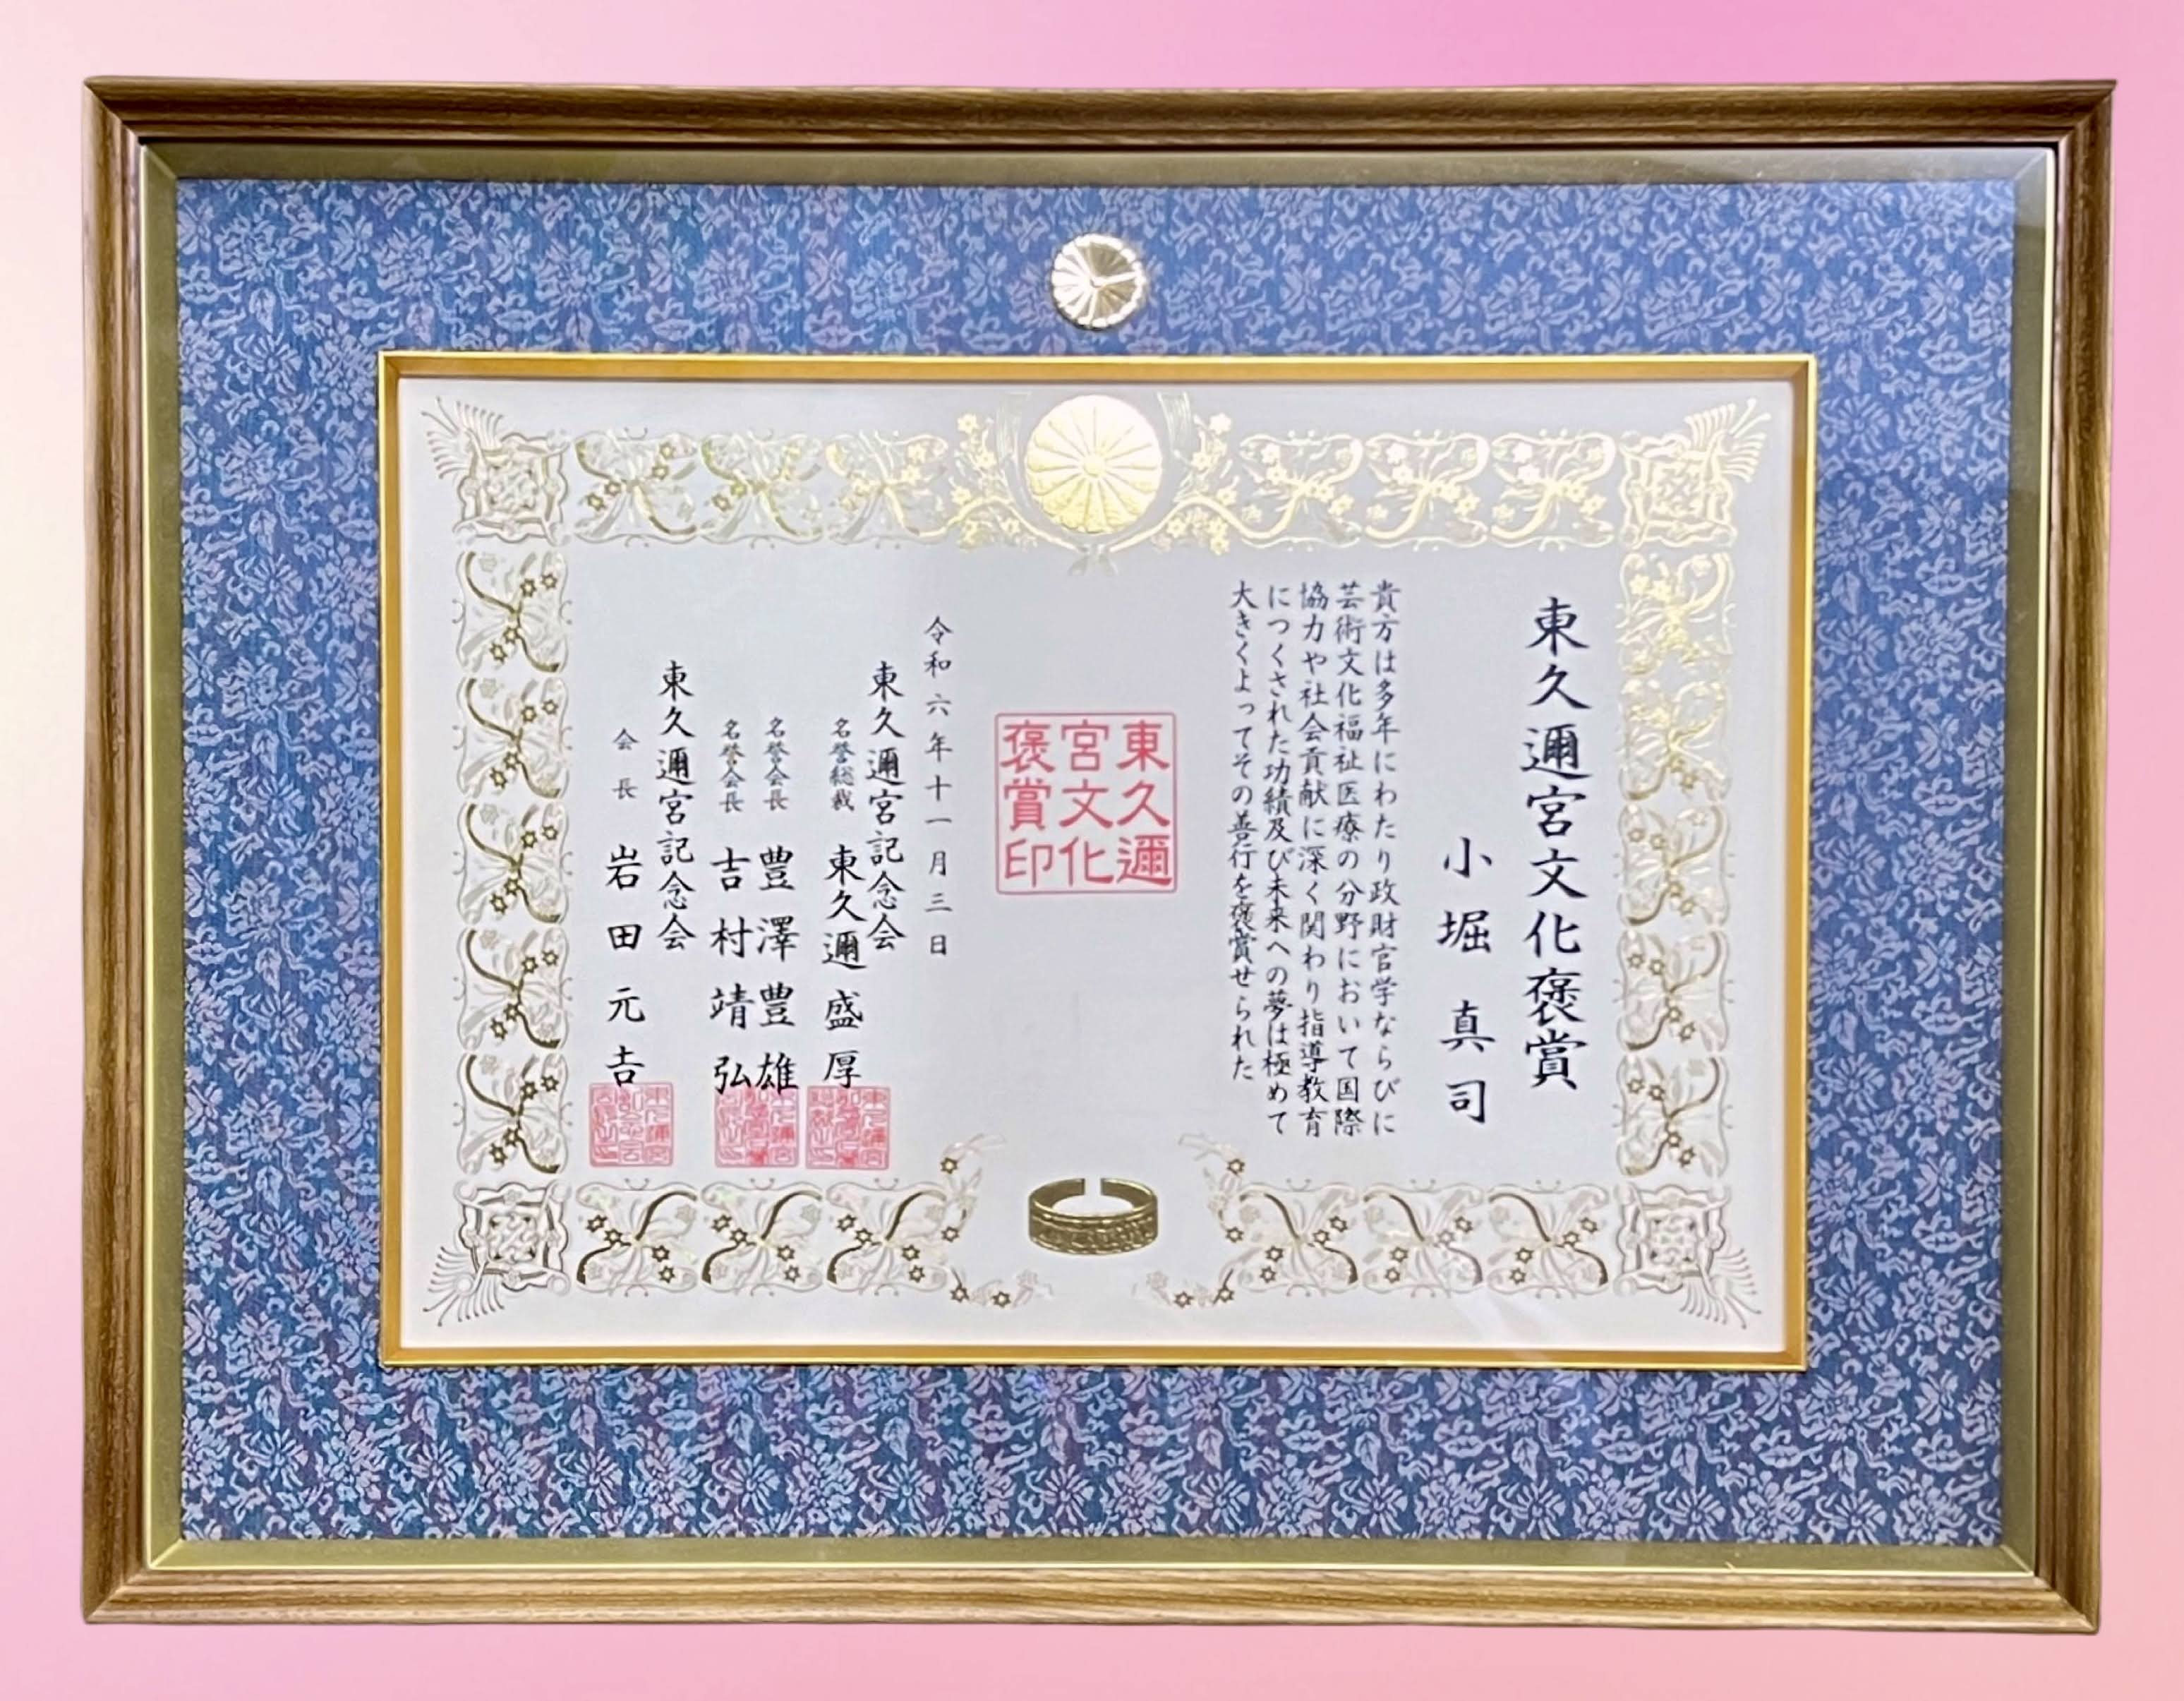 東久邇宮文化褒賞
小堀 真司
貴方は多年にわたり政財官学ならびに
芸術文化福祉医療の分野において国際
協力や社会貢献に深く関わり指導教育
につくされた功績及び未来への夢は極めて
大きくよってその善行を褒賞せられた
東久邇
宮文化
褒賞印
令和六年十一月三日
東久邇宮記念会
名誉総裁 東久邇盛厚
名誉会長 豊澤豊雄
名誉会長 吉村靖弘
東久邇宮記念会
会長 岩田元吉